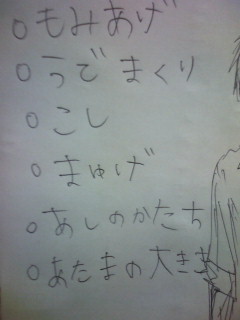 ○もみあげ
○うでまくり
○こし
○まゆげ
○あしのかたち
○あたまの大きさ